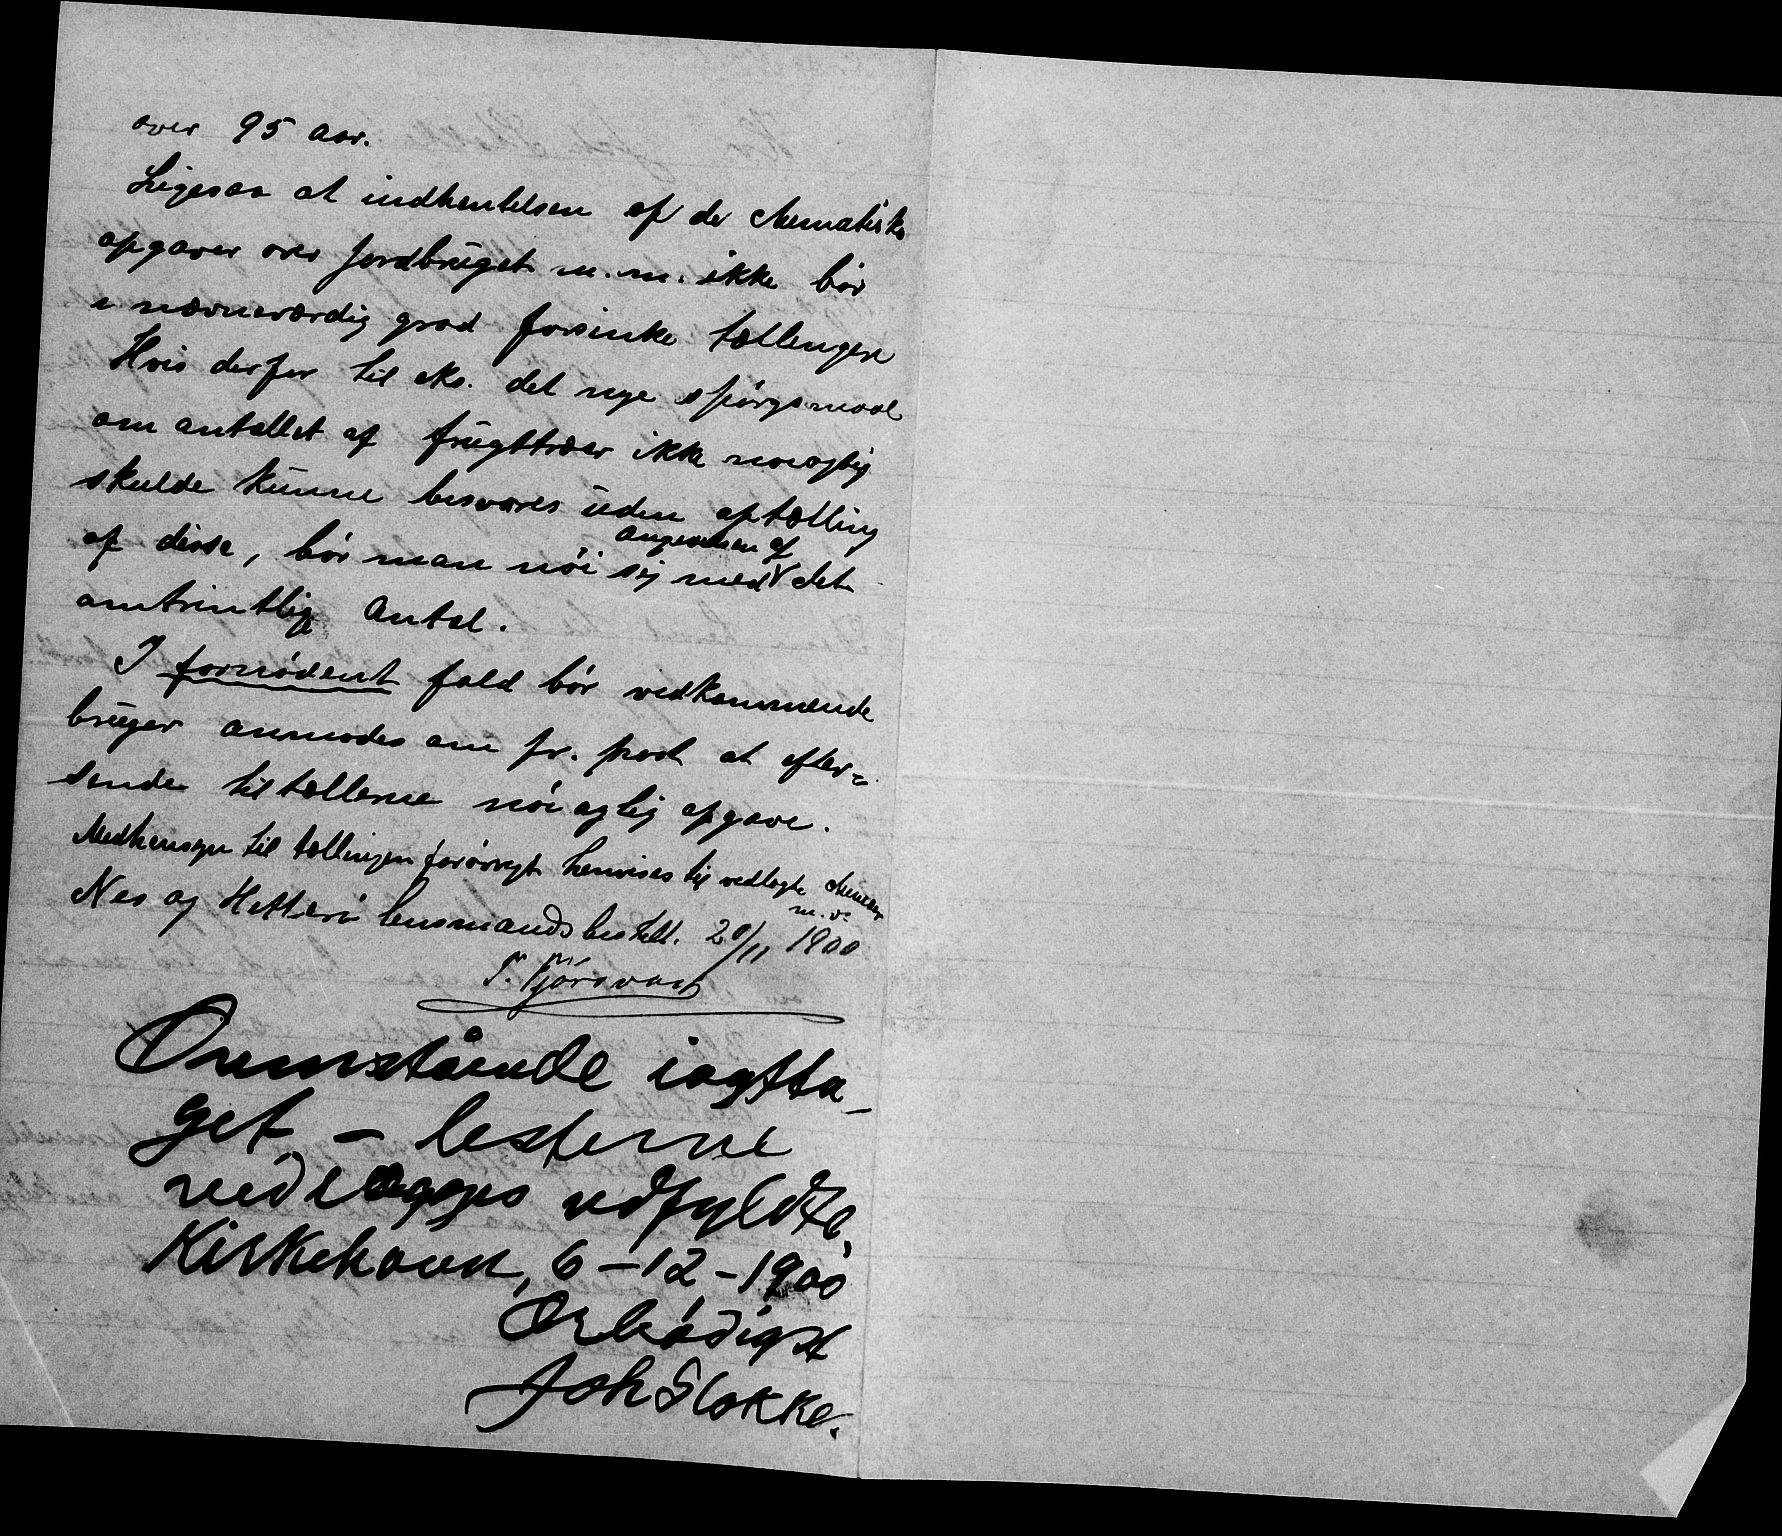 over 95 aar.
Ligesaa at indhentelsen af de skematiske
opgaver over jordbruget m.m. ikke bør
i nævneværdig grad forsinke tællingen
Hvis derfor til eks. det nye spørgsmaal
om antallet af frugttræer ikke nøiagtig
skulde kunne besvares uden optælling
af disse, bør man nøie sig med angivelsen af det
omtrintlig antal.
I fornødent fald bør vedkommende
bruger anmodes om pr. post at efter=
sende til tællerne nøiagtig opgave.
Medhensyn til tællingen forøvrigt henvises til vedlagte skemaer
m.v.
Nes og Hitterø lensmandsbestill. 20/11 1900
Ovenstående iagtta-
get – listerne
vedlægges udfyldte.
Kirkehavn, 6–12–1900
Ærbødigst
Joh Stokke.